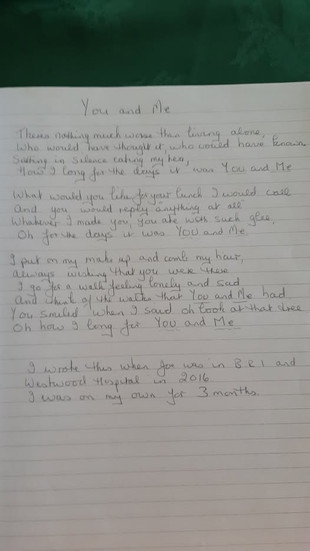 You and Me
Theres nothing much worse than living alone,
Who would have thought it, who could have known
Sitting in silence eating my tea,
How I long for the days it was You and Me
What would you like for your lunch I would call
And you would reply anything at all
Whatever I made you, you ate with such glee,
Oh for the days it was YOU and Me
I put on my make up and comb my hair,
Always wishing that you were there
I go for a walk feeling lonely and sad
And think of the walks that You and Me had
You smiled when I said oh look at that tree
Oh how I long for You and Me
I wrote this when Joe was in B.R.I and
Westwood Hospital in 2016.
I was on my own for 3 months.